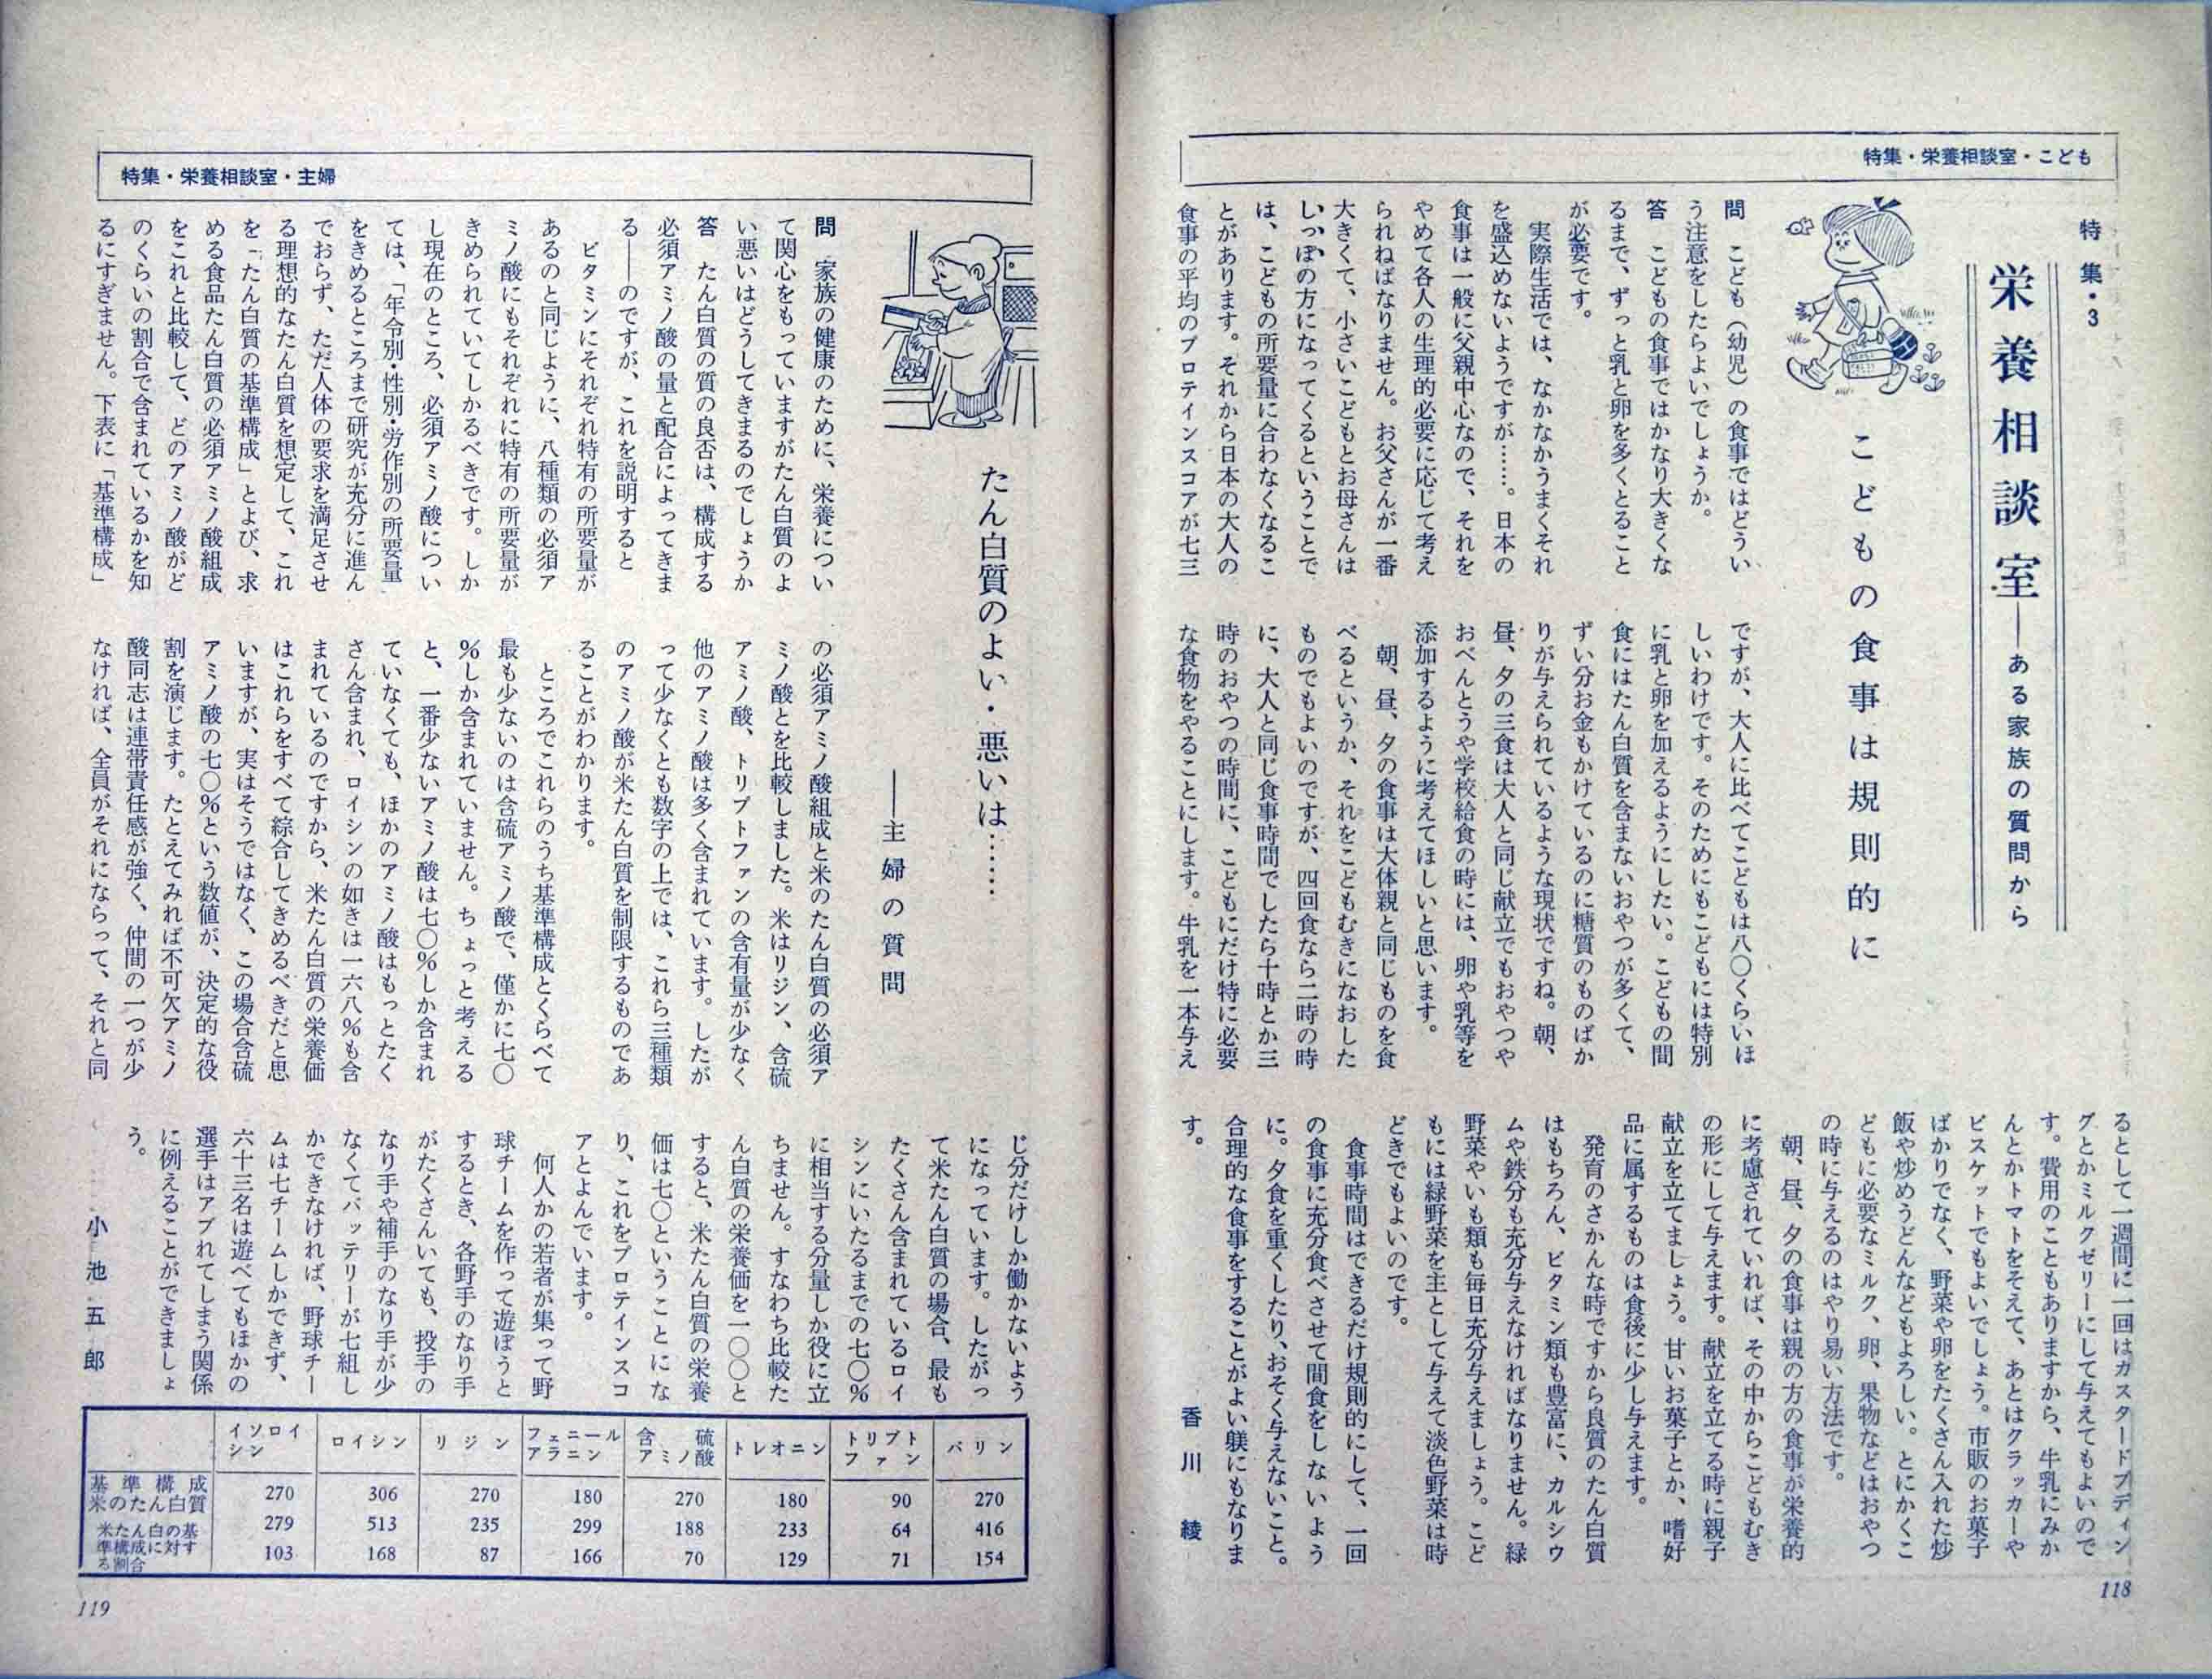 特集・栄養相談室・こども
特集・3
栄養相談室――ある家族の質問から
こどもの食事は規則的に
問　こども（幼児）の食事ではどうい
う注意をしたらよいでしょうか。
答　こどもの食事ではかなり大きくな
るまで、ずっと乳と卵を多くとること
が必要です。
実際生活では、なかなかうまくそれ
を盛込めないようですが……。日本の
食事は一般に父親中心なので、それを
やめて各人の生理的必要に応じて考え
られねばなりません。お父さんが一番
大きくて、小さいこどもとお母さんは
しっぽの方になってくるということで
は、こどもの所要量に合わなくなるこ
とがあります。それから日本の大人の
食事の平均のプロテインスコアが七三
ですが、大人に比べてこどもは八〇くらいほ
しいわけです。そのためにもこどもには特別
に乳と卵を加えるようにしたい。こどもの間
食にはたん白質を含まないおやつが多くて、
ずい分お金もかけているのに糖質のものばか
りが与えられているような現状ですね。朝、
昼、夕の三食は大人と同じ献立でもおやつや
おべんとうや学校給食の時には、卵や乳等を
添加するように考えてほしいと思います。
朝、昼、夕の食事は大体親と同じものを食
べるというか、それをこどもむきになおした
ものでもよいのですが、四回食なら二時の時
に、大人と同じ食事時間でしたら十時とか三
時のおやつの時間に、こどもにだけ特に必要
な食物をやることにします。牛乳を一本与え
るとして一週間に一回はカスタードプディン
グとかミルクゼリーにして与えてもよいので
す。費用のこともありますから、牛乳にみか
んとかトマトをそえて、あとはクラッカーや
ビスケットでもよいでしょう。市販のお菓子
ばかりでなく、野菜や卵をたくさん入れた炒
飯や炒めうどんなどもよろしい。とにかくこ
どもに必要なミルク、卵、果物などはおやつ
の時に与えるのはやり易い方法です。
朝、昼、夕の食事は親の方の食事が栄養的
に考慮されていれば、その中からこどもむき
の形にして与えます。献立を立てる時に親子
献立を立てましょう。甘いお菓子とか、嗜好
品に属するものは食後に少し与えます。
発育のさかんな時ですから良質のたん白質
はもちろん、ビタミン類も豊富に、カルシウ
ムや鉄分も充分与えなければなりません。緑
野菜やいも類も毎日充分与えましょう。こど
もには緑野菜を主として与えて淡色野菜は時
どきでもよいのです。
食事時間はできるだけ規則的にして、一回
の食事に充分食べさせて間食をしないよう
に。夕食を重くしたり、おそく与えないこと。
合理的な食事をすることがよい躾にもなりま
す。
香川　綾
118
特集・栄養相談室・主婦
たん白質のよい・悪いは……
――主婦の質問
問　家族の健康のために、栄養につい
て関心をもっていますがたん白質のよ
い悪いはどうしてきまるのでしょうか
答　たん白質の質の良否は、構成する
必須アミノ酸の量と配合によってきま
る――のですが、これを説明すると
ビタミンにそれぞれ特有の所要量が
あるのと同じように、八種類の必須ア
ミノ酸にもそれぞれに特有の所要量が
きめられていてしかるべきです。しか
し現在のところ、必須アミノ酸につい
ては、「年令別・性別・労作別の所要量
をきめるところまで研究が充分に進ん
でおらず、ただ人体の要求を満足させ
る理想的なたん白質を想定して、これ
を「たん白質の基準構成」とよび、求
める食品たん白質の必須アミノ酸組成
をこれと比較して、どのアミノ酸がど
のくらいの割合で含まれているかを知
るにすぎません。下表に「基準構成」
の必須アミノ酸組成と米のたん白質の必須ア
ミノ酸とを比較しました。米はリジン、含硫
アミノ酸、トリプトファンの含有量が少なく
他のアミノ酸は多く含まれています。したが
って少なくとも数字の上では、これら三種類
のアミノ酸が米たん白質を制限するものであ
ることがわかります。
ところでこれらのうち基準構成とくらべて
最も少ないのは含硫アミノ酸で、僅かに七〇
％しか含まれていません。ちょっと考える
と、一番少ないアミノ酸は七〇％しか含まれ
ていなくても、ほかのアミノ酸はもっとたく
さん含まれ、ロイシンの如きは一六八％も含
まれているのですから、米たん白質の栄養価
はこれらをすべて綜合してきめるべきだと思
いますが、実はそうではなく、この場合含硫
アミノ酸の七〇％という数値が、決定的な役
割を演じます。たとえてみれば不可欠アミノ
酸同志は連帯責任感が強く、仲間の一つが少
なければ、全員がそれにならって、それと同
じ分だけしか働かないよう
になっています。したがっ
て米たん白質の場合、最も
たくさん含まれているロイ
シンにいたるまでの七〇％
に相当する分量しか役に立
ちません。すなわち比較た
ん白質の栄養価を一〇〇と
すると、米たん白質の栄養
価は七〇ということにな
り、これをプロテインスコ
アとよんでいます。
何人かの若者が集って野
球チームを作って遊ぼうと
するとき、各野手のなり手
がたくさんいても、投手の
なり手や補手のなり手が少
なくてバッテリーが七組し
かできなければ、野球チー
ムは七チームしかできず、
六十三名は遊べてもほかの
選手はアブれてしまう関係
に例えることができましょ
う。
小池五郎
イソロイシン　ロイシン　リジン　フェニールアラニン　含硫アミノ酸　トレオニン　トリプトファン　バリン
基準構成　270　306　270　180　270　180　90　270
米のたん白質　279　513　235　299　188　233　64　416
米たん白の基準構成に対する割合　103　168　87　166　70　129　71　154
119